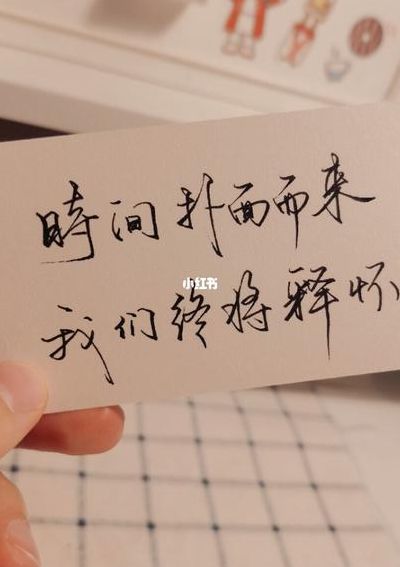 時间扑面而来
小红书
我们终将释怀